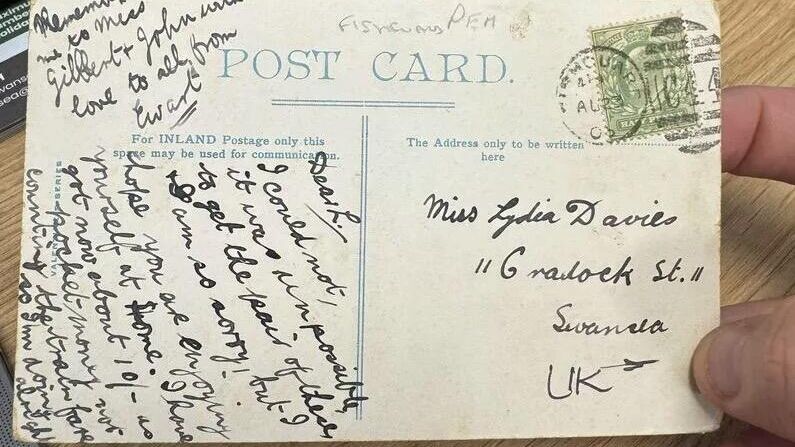 Remember
me to Miss
Gilbert + John with
love to all from
Ewart
FISHGUARD PEM
POST CARD.
For INLAND Postage only this
space may be used for communication.
The Address only to be written
here
Dear L.
I could not,
it was impossible,
to get the pair of these
I am so sorry! but I
hope you are enjoying
yourself at home. I have
got now about 10/- as
pocket-money not
counting the train fare
so I'm doing
alright
Miss Lydia Davies
"11 Cradock St."
Swansea
UK
AU 23